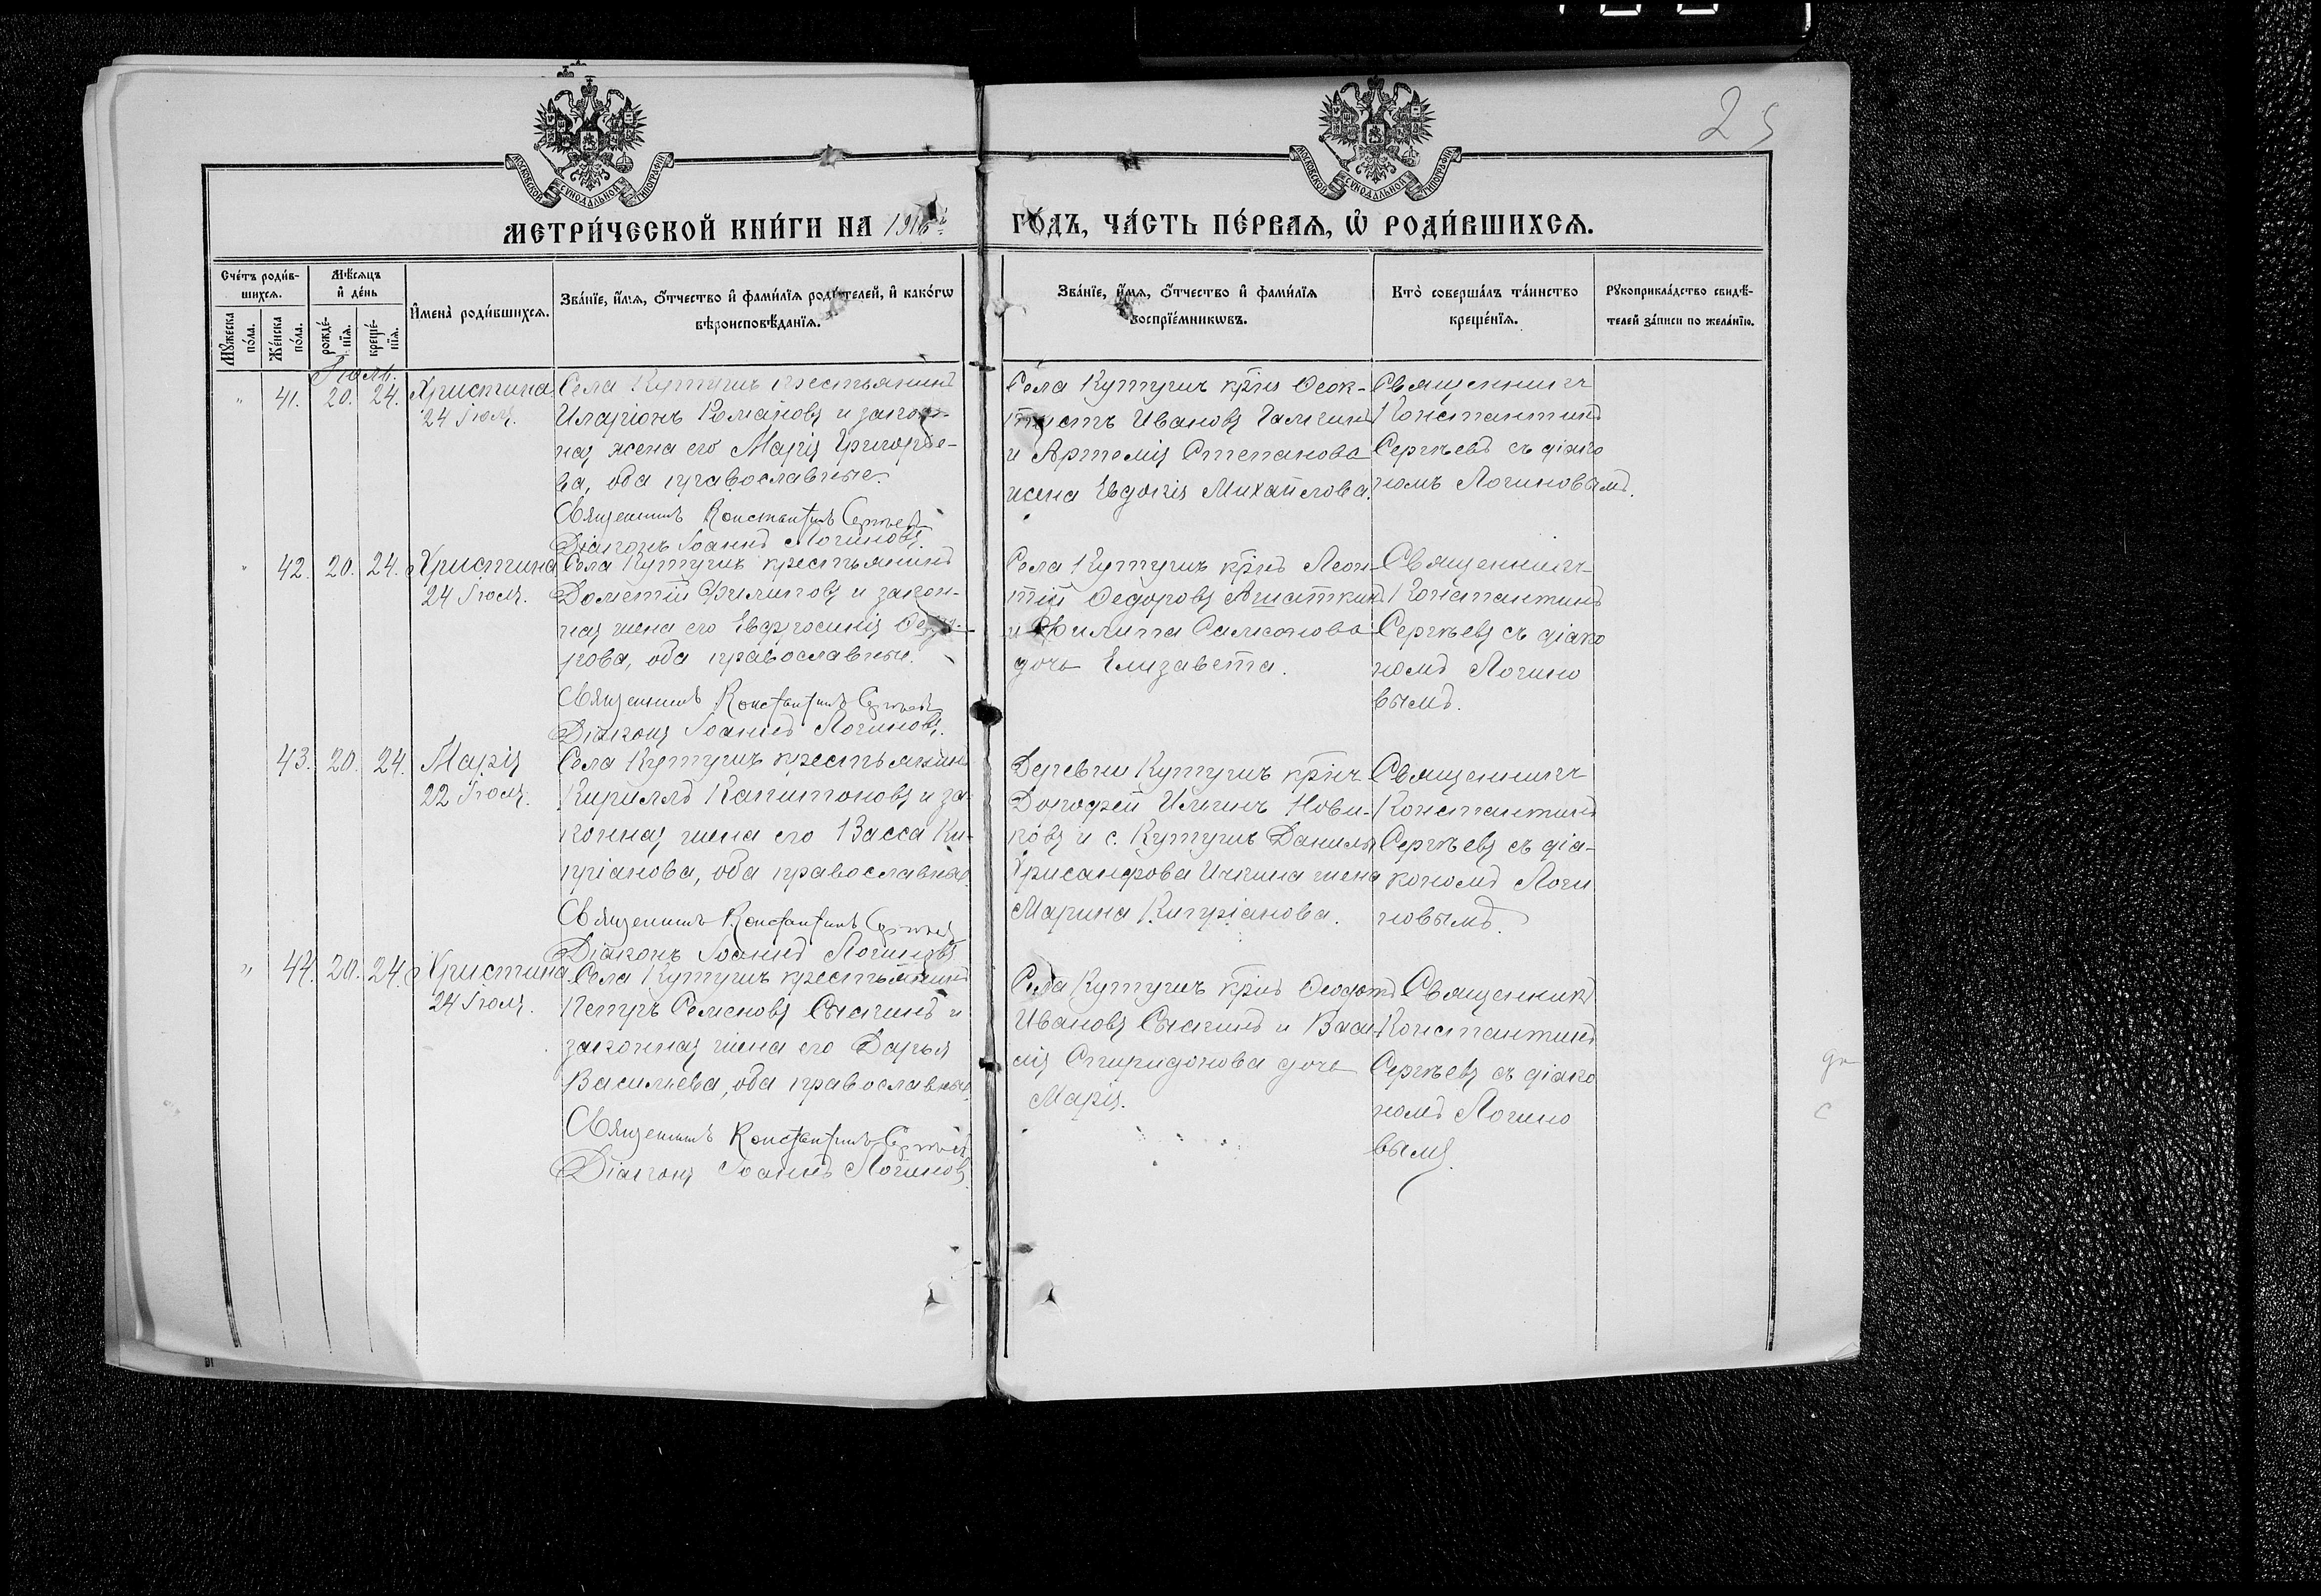 25
МОСКОВСКОЙ СѴНОДАЛЬНОЙ ТИПОГРАФІИ
МОСКОВСКОЙ СѴНОДАЛЬНОЙ ТИПОГРАФІИ
МЕТРИ́ЧЕСКОЙ КНИ́ГИ НА 1916й ГО́ДЪ, ЧА́СТЬ ПЕ́РВАѦ, Ѡ҆ РОДИ́ВШИХСѦ.
Сче́тъ роди́в-
шихсѧ.
Мꙋ́жеска
по́ла.
Же́нска
по́ла.
Мѣ́сѧцъ
и҆ де́нь
рожде́-
нїѧ.
креще́-
нїѧ.
И҆мена̀ роди́вшихсѧ.
Зва́нїе, и҆́мѧ, ѻ҆́тчество и҆ фами́лїѧ роди́телей, и҆ како́гѡ
вѣроисповѣ́данїѧ.
Зва́нїе, и҆́мѧ, ѻ҆́тчество и҆ фами́лїѧ
воспрїе́мникѡвъ.
Кто̀ соверша́лъ та́инство
креще́нїѧ.
Рꙋкоприкла́дство свидѣ́-
телей за́писи по жела́нїю.
Іюль.
" 41. 20. 24. Христина
24 Іюля.
Села Кутушъ крестьянинъ
Иларіонъ Романовъ и закон-
ная жена его Марія Григорье-
ва, оба православные.
Священникъ Константинъ Сергѣевъ
Діаконъ Іоаннъ Логиновъ.
Села Кутушъ крнъ Ѳеок-
тистъ Ивановъ
и Артемія Степанова
жена Евдокія Михайлова.
Священникъ
Константинъ
Сергѣевъ съ діако
номъ Логиновымъ.
" 42. 20. 24. Христина
24 Іюля.
Села Кутушъ крестьянинъ
Дометій Филиповъ и закон-
ная жена его Евфросинія Ѳедо-
рова, оба православные.
Священникъ Константинъ Сергѣевъ
Діаконъ Іоаннъ Логиновъ.
Села Кутушъ крнъ Леон-
тій Ѳедоровъ
и Филипа Самсонова
дочь Елизавета.
Священникъ
Константинъ
Сергѣевъ съ діако
номъ Логино
вымъ.
43. 20. 24. Марія
22 Іюля.
Села Кутушъ крестьянинъ
Кириллъ Капитоновъ и за-
конная жена его Васса Ки-
пріанова, оба православные.
Священникъ Константинъ Сергѣевъ
Діаконъ Іоаннъ Логиновъ
Деревни Кутушъ крнъ
Дорофей Ильинъ Нови-
ковъ и с. Кутушъ Данилы
Хрисанфова жена
Марина Кипріанова.
Священникъ
Константинъ
Сергѣевъ съ діа-
кономъ Логи
новымъ.
" 44. 20. 24. Христина
24 Іюля.
Села Кутушъ крестьянинъ
Петръ Семеновъ и
законная жена его Дарья
Васильева, оба православные.
Священникъ Константинъ Сергѣевъ
Діаконъ Іоаннъ Логиновъ.
Села Кутушъ крнъ Ѳеодотъ
Ивановъ и Васи-
лія Спиридонова дочь
Марія.
Священникъ
Константинъ
Сергѣевъ съ діако
номъ Логино
вымъ.